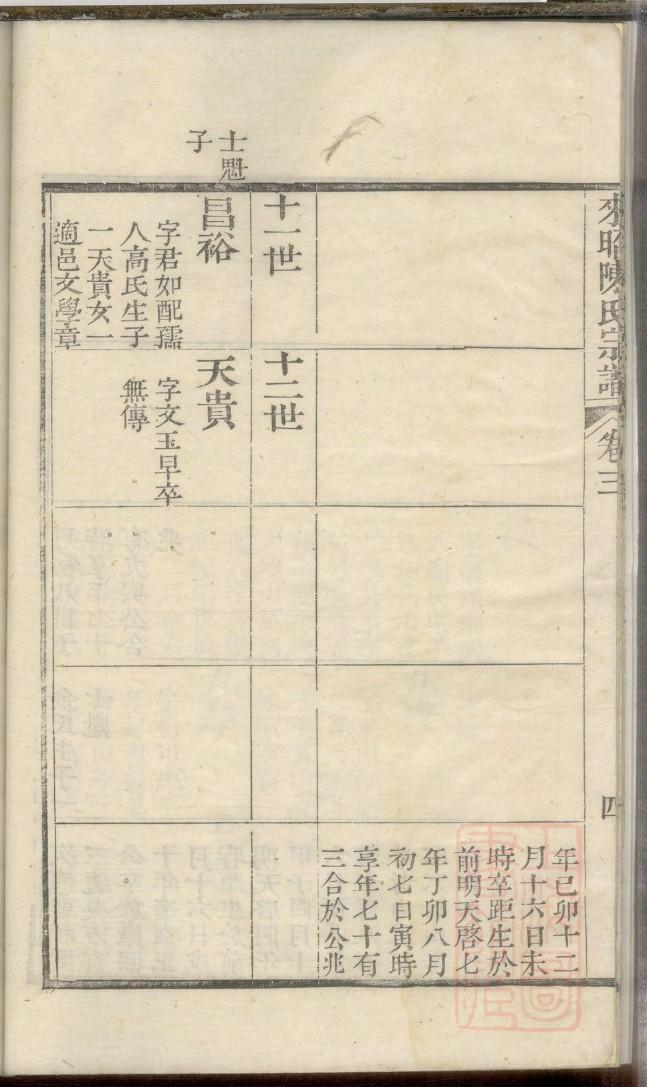 陳氏宗譜
卷三
四
年己卯十二
月十六日未
時卒距生於
前明天啓七
年丁卯八月
初七日寅時
享年七十有
三合於公兆
十一世
十二世
士魁
子
昌裕
字君如配孺
人高氏生子
一天貴女一
適邑文學章
天貴
字文玉早卒
無傳